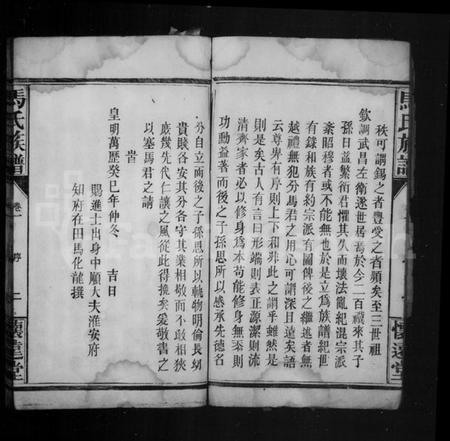 馬氏族譜
秩可謂錫之者豊受之者顯矣至三世祖
欽調武昌左衛遂世居焉於今二百禩來其子
孫日益繁衍君懼其久而壞法亂紀混宗派
紊昭穆者或不能無也於是立爲族譜紀世
有錄和族有約宗派有圖俾後之繼逃者無
越禮無犯分馬君之用心可謂深且遠矣語
云尊卑有序則上下和非此之謂乎雖然是
則是矣古人有言曰形端則表正源潔則流
清齊家者必以修身爲本苟能修身無忝則
功勳益著而後之子孫思所以感承先德名
分自立兩後之子孫思所以軌物明倫長幼
貴賤各安其分各守其業相敬而不敢相狹
庶幾先代仁讓之風從此得推矣爰敬書之
以塞馬君之請
旹
皇明萬歷癸巳年仲冬 吉日
賜進士出身中順大夫淮安府
知府在田馬化龍撰
馬氏族譜
卷一
序
二
懷遠堂